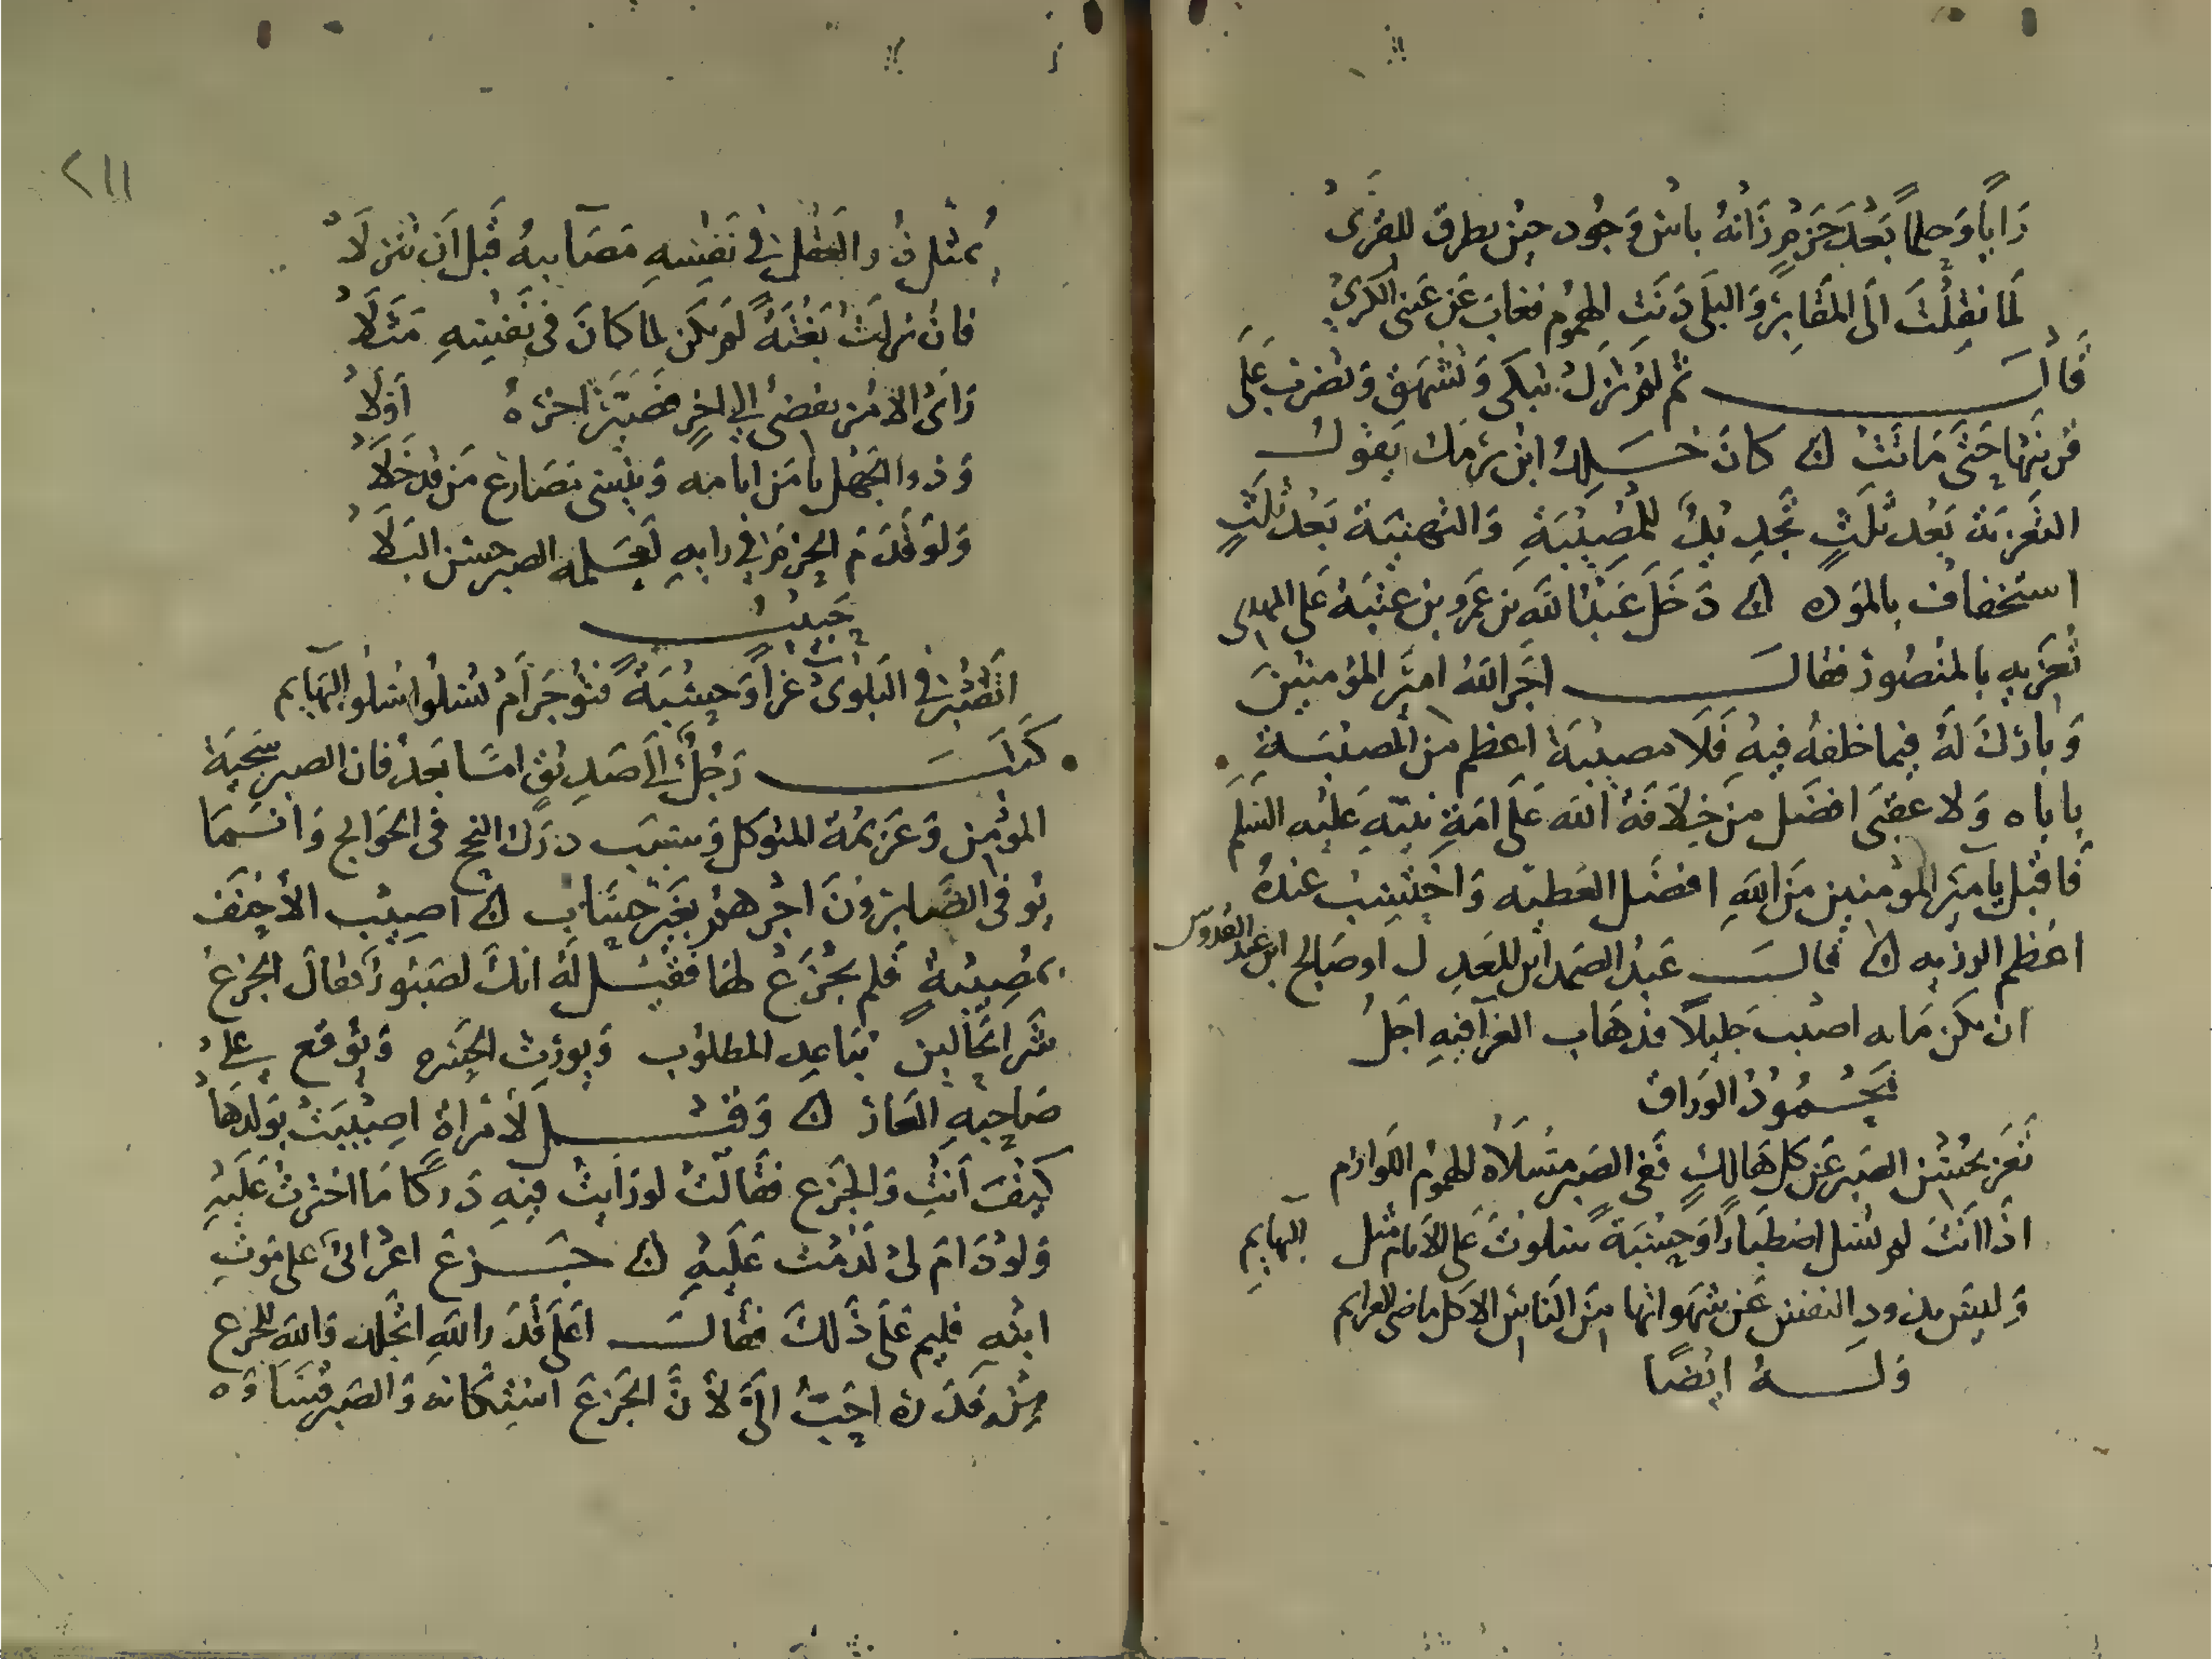 رَايًا وَحِلمًا بَعْدَ حَزمٍ زَانهُ باس وَجُود حين يطرق للقرى
لَمَا نقلتَ الَى المَقَابِرِ وَالبلَى دَنَت الهموم فغابَ عَن عَينى الكرى
قَالَ ثم لَم تزل تبكى وَتشهق وَتضرب عَلَى
قَرنَيها حَتى مَاتَت ں كانَ سهل ابن يَقول
التَعزيَة بَعْد ثلَثٍ تجديدٌ للمُصِيبَةِ وَالتهنِيَة بَعْد ثلَثٍ
استخفاف بالموَده ں دَخَلَ عَبْدُ الله بن عَمرو بن عتبَة عَلى المهدى
يُعَزيهِ بالمنصُور فقالَ اجَرَ اللهُ اميَر المؤمنينَ
وَبارَكَ لَهُ فيما خلفهُ فيهِ فَلَا مصيبة اعظم من المصيبَة
باباه وَلا عقبَى افضل من خِلَافَة الله عَلَى امَةِ نبيّهِ عَليه السَلَم
فَاقبل يا اميَر المؤمنين منَ اللهِ افضَل العَطيّه وَاحتَسِب عندهُ
اعَظم الرزيه ں قالَ عَبْدُ الصمد ابن المعَدل او صَالح ابن عبد القدوس
ان يكن مَا به اصبت جَليلًا فذهَاب العَزآ فيهِ اجَلُ
مَحْمُودُ الوَرَاق
تَعَز بحسْن الصَبر عَن كل هَالكٍ فَفى الصَبر مَسلَاة الهموم اللوازم
اذَا انتَ لم تسْل اصْطبَارًا وَحِسْبَةً سَلوتَ عَلى الايام مثل البهايم
وَليسَ يذود النفس عَن شهَواتها منَ الناس الا كل ماضى العزايم
وَلَهُ ايْضًا
٢١١
يُمثل ذُو العَقل فى نَفسِهِ مَصَآيبهُ قَبل اَن تنزلَا
فان نزلتْ بَغْتَةً لم يَكن لما كانَ فى نَفْسِهِ مَثَلَا
رَاىَ الامْر يفضىْ الى اخرٍ فَصَيَّرَ اخرَهُ اوَلَا
وَذو الجَهل يامَن ايامه وَينسى مَصَارعَ مَن قد خَلَا
وَلَو قَدَّمَ الحزمَ فى رايهِ لَعَلمه الصبر حسْن البَلَا
حَبيبٌ
اتصْبرُ فى البَلوىْ عَزآً وَحِسْبَةً فتوجَر اَمْ تسْلوا سُلو البَهَايم
كَتبَ رَجُلٌ الَى صَديقٍ امّا بَعْدُ فان الصبر سَجيَة
المؤمِن وَعَزيمَة المتوكل وَسَبَبَ درَك النجح فى الحَوايج وَانمَا
يُوَفى الصَابرونَ اجْرَهم بغَير حِسَابٍ ں اصِيبَ الاحنَف
بمُصِيبَةٍ فَلم يجْزعْ لهَا فَقيل لَهُ انكَ لصَبُورٌ فَقالَ الجزعُ
شَر الحَالينِ يبَاعِد المطلوب وَيورِث الحَسْره وَيوقع عَلى
صَاحِبهِ العَارَ ں وَقيل لأمْراةٍ اصِيْبَتْ بوَلدهَا
كيْفَ اَنتِ وَالجَزع فقالَتْ لو رَايتُ فيهِ دَرَكًا مَا اخترتُ عَلَيْهِ
وَلو دَامَ لىْ لَدُمْت عَلَيهِ ں جَزعَ اعْرَابىٌ عَلى مَوْتِ
ابنْهِ فليم عَلَى ذَلكَ فقَالَ اعَلَى قَدَر اللهِ اتجلد وَالله للجزع
مِن قَدَره احَبُّ الَىَّ لأنَّ الجَزعَ اسْتكانه وَالصَبر قسَاوَه